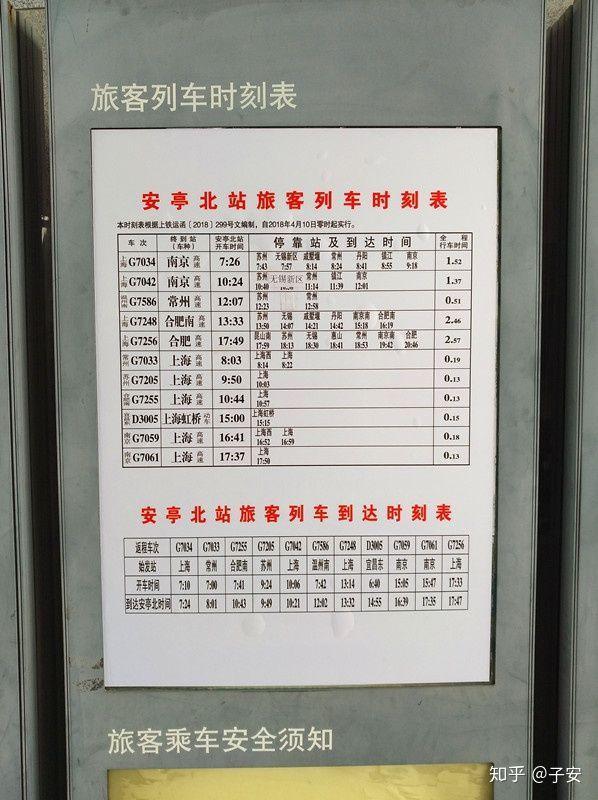 旅客列车时刻表
安亭北站旅客列车时刻表
本时刻表根据上铁运函〔2018〕299号文编制，自2018年4月10日零时起实行。
车次 终到站（车种） 安亭北站开车时间 停靠站及到达时间 全程行车时间
上海 G7034 南京 高速 7:26 苏州 无锡新区 戚墅堰 常州 丹阳 镇江 南京 1.52
7:43 7:57 8:14 8:24 8:41 8:55 9:18
上海 G7042 南京 高速 10:24 苏州 无锡新区 常州 镇江 南京 1.37
10:40 11:14 11:39 12:01
温州 G7586 常州 高速 12:07 苏州 常州 0.51
12:23 12:58
上海 G7248 合肥南 高速 13:33 苏州 无锡 戚墅堰 丹阳 南京南 合肥南 2.46
13:50 14:07 14:21 14:42 15:18 16:19
上海 G7256 合肥 高速 17:49 昆山南 苏州 无锡 惠山 常州 南京南 合肥 2.57
17:59 18:13 18:30 18:41 18:53 19:42 20:46
常州 G7033 上海 高速 8:03 上海西 上海 0.19
8:14 8:22
苏州 G7205 上海 高速 9:50 上海 0.13
10:03
G7255 上海 高速 10:44 上海 0.13
10:57
D3005 上海虹桥 动车 15:00 上海虹桥 0.15
15:15
南京 G7059 上海 高速 16:41 上海西 上海 0.18
16:52 16:59
南京 G7061 上海 高速 17:37 上海 0.13
17:50
安亭北站旅客列车到达时刻表
返程车次 G7034 G7033 G7255 G7205 G7042 G7586 G7248 D3005 G7059 G7061 G7256
始发站 上海 常州 合肥南 苏州 上海 温州南 上海 宜昌东 南京 南京 上海
开车时间 7:10 7:00 7:41 9:24 10:06 7:42 13:14 6:40 15:05 15:47 17:33
到达安亭北时间 7:24 8:01 10:43 9:49 10:21 12:02 13:32 14:55 16:39 17:35 17:47
旅客乘车安全须知
知乎 @子安